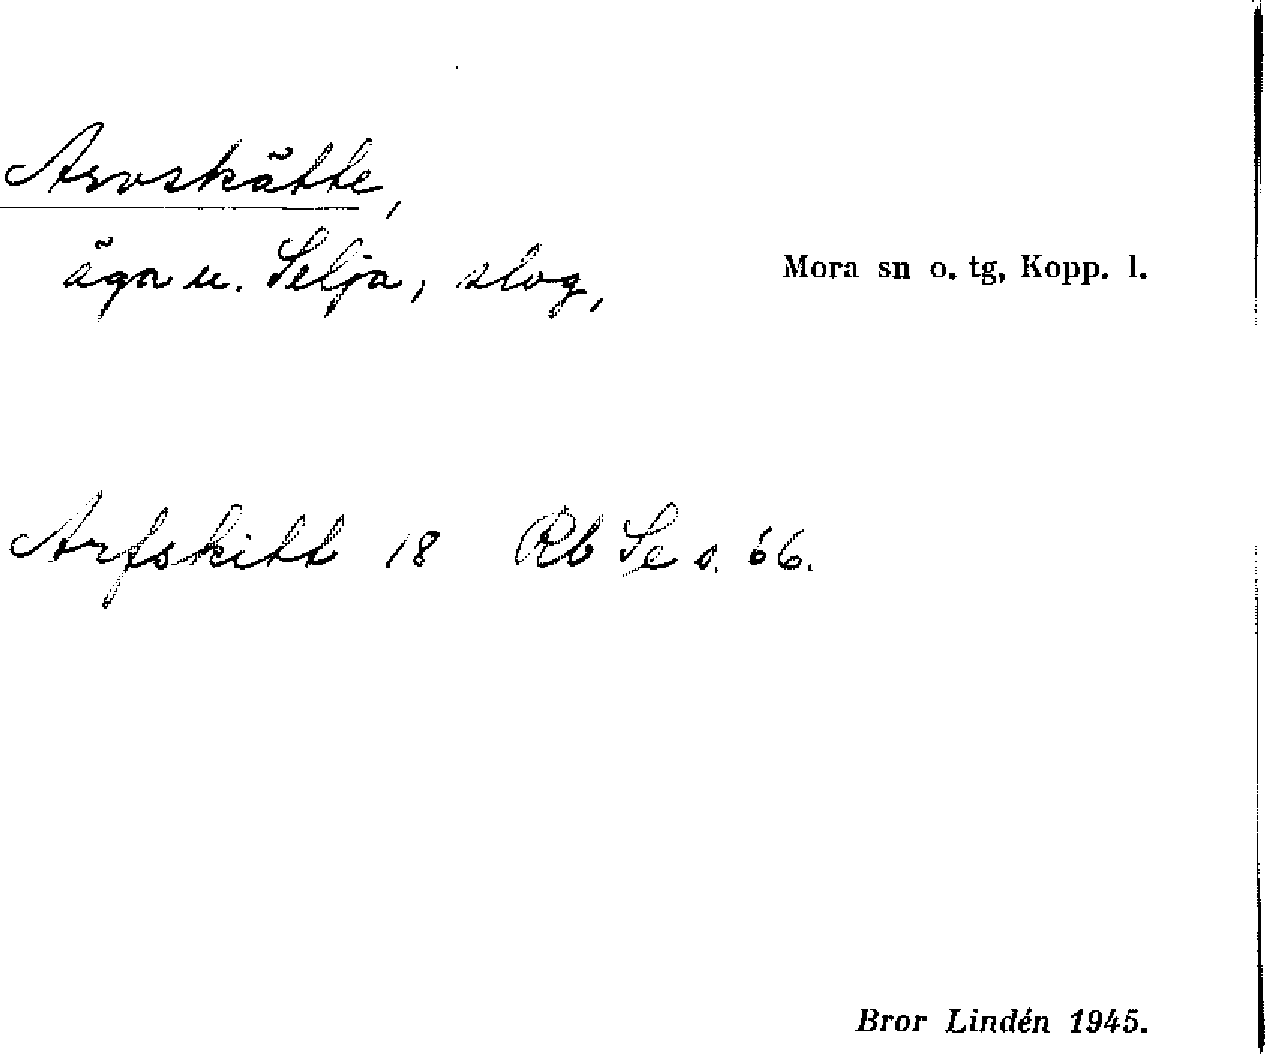 Arvskätte,
äga u. Selja, slog,
Mora sn o. tg, Kopp. l.
Arfskitt 18 Rb Se s. 66.
Bror Lindén 1945.